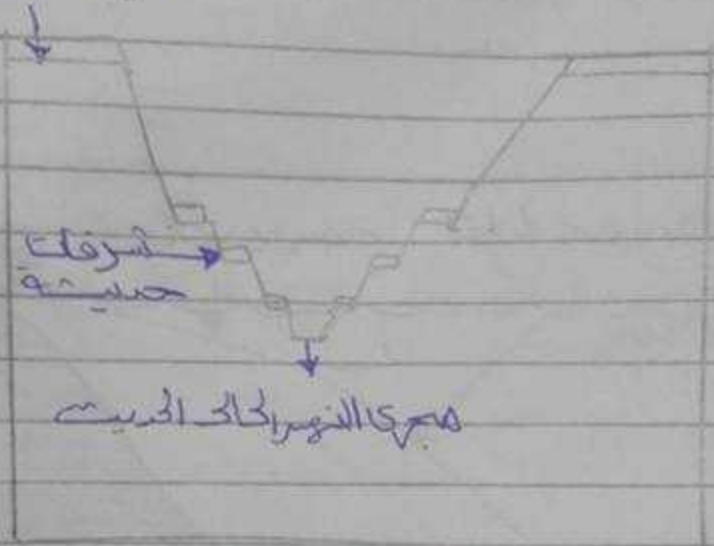 شرفات
حديثة
مجرى النهر الحالى الحديث